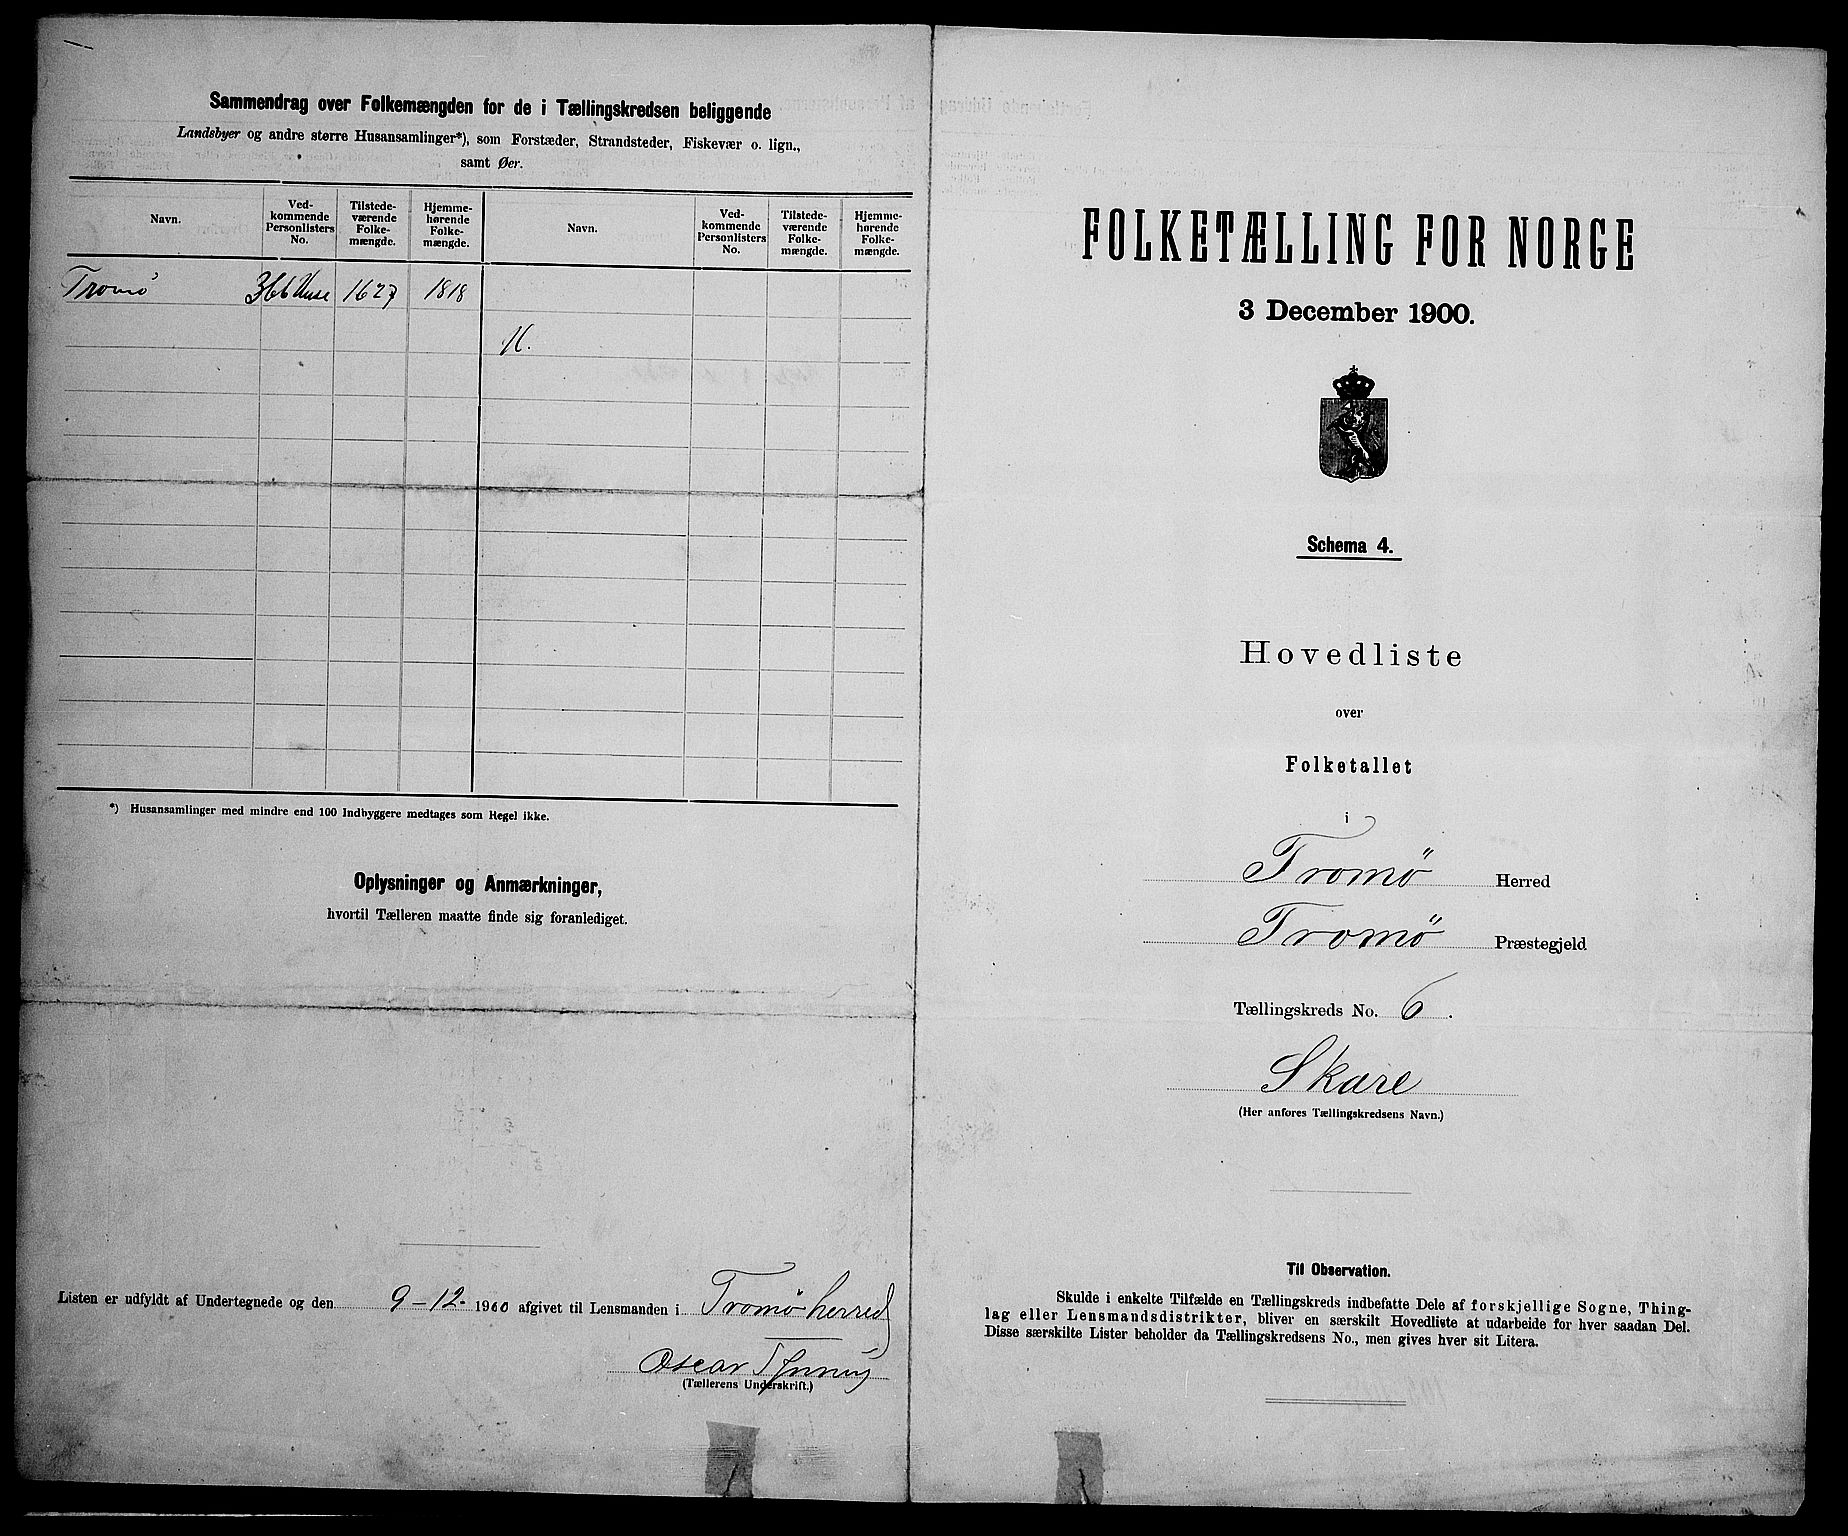 Sammendrag over Folkemængden for de i Tællingskredsen beliggende
Landsbyer og andre større Husansamlinger*), som Forstæder, Strandsteder, Fiskevær o. lign.,
samt Øer.
Navn.
Ved-
kommende
Personlisters
No.
Tilstede-
værende
Folke-
mængde.
Hjemme-
hørende
Folke-
mængde.
Navn.
Ved-
kommende
Personlisters
No.
Tilstede-
værende
Folke-
mængde.
Hjemme-
hørende
Folke-
mængde.
Tromø 366 Huse 1627 1818
*) Husansamlinger med mindre end 100 Indbyggere medtages som Regel ikke.
Oplysninger og Anmærkninger,
hvortil Tælleren maatte finde sig foranlediget.
Listen er udfyldt af Undertegnede og den 9-12- 1900 afgivet til Lensmanden i Tromø herred
Oscar
(Tællerens Underskrift.)
FOLKETÆLLING FOR NORGE
3 December 1900.
Schema 4.
Hovedliste
over
Folketallet
i
Tromø Herred
Tromø Præstegjeld
Tællingskreds No. 6.
Skare
(Her anføres Tællingskredsens Navn.)
Til Observation.
Skulde i enkelte Tilfælde en Tællingskreds indbefatte Dele af forskjellige Sogne, Thing-
lag eller Lensmandsdistrikter, bliver en særskilt Hovedliste at udarbeide for hver saadan Del.
Disse særskilte Lister beholder da Tællingskredsens No., men gives hver sit Litera.